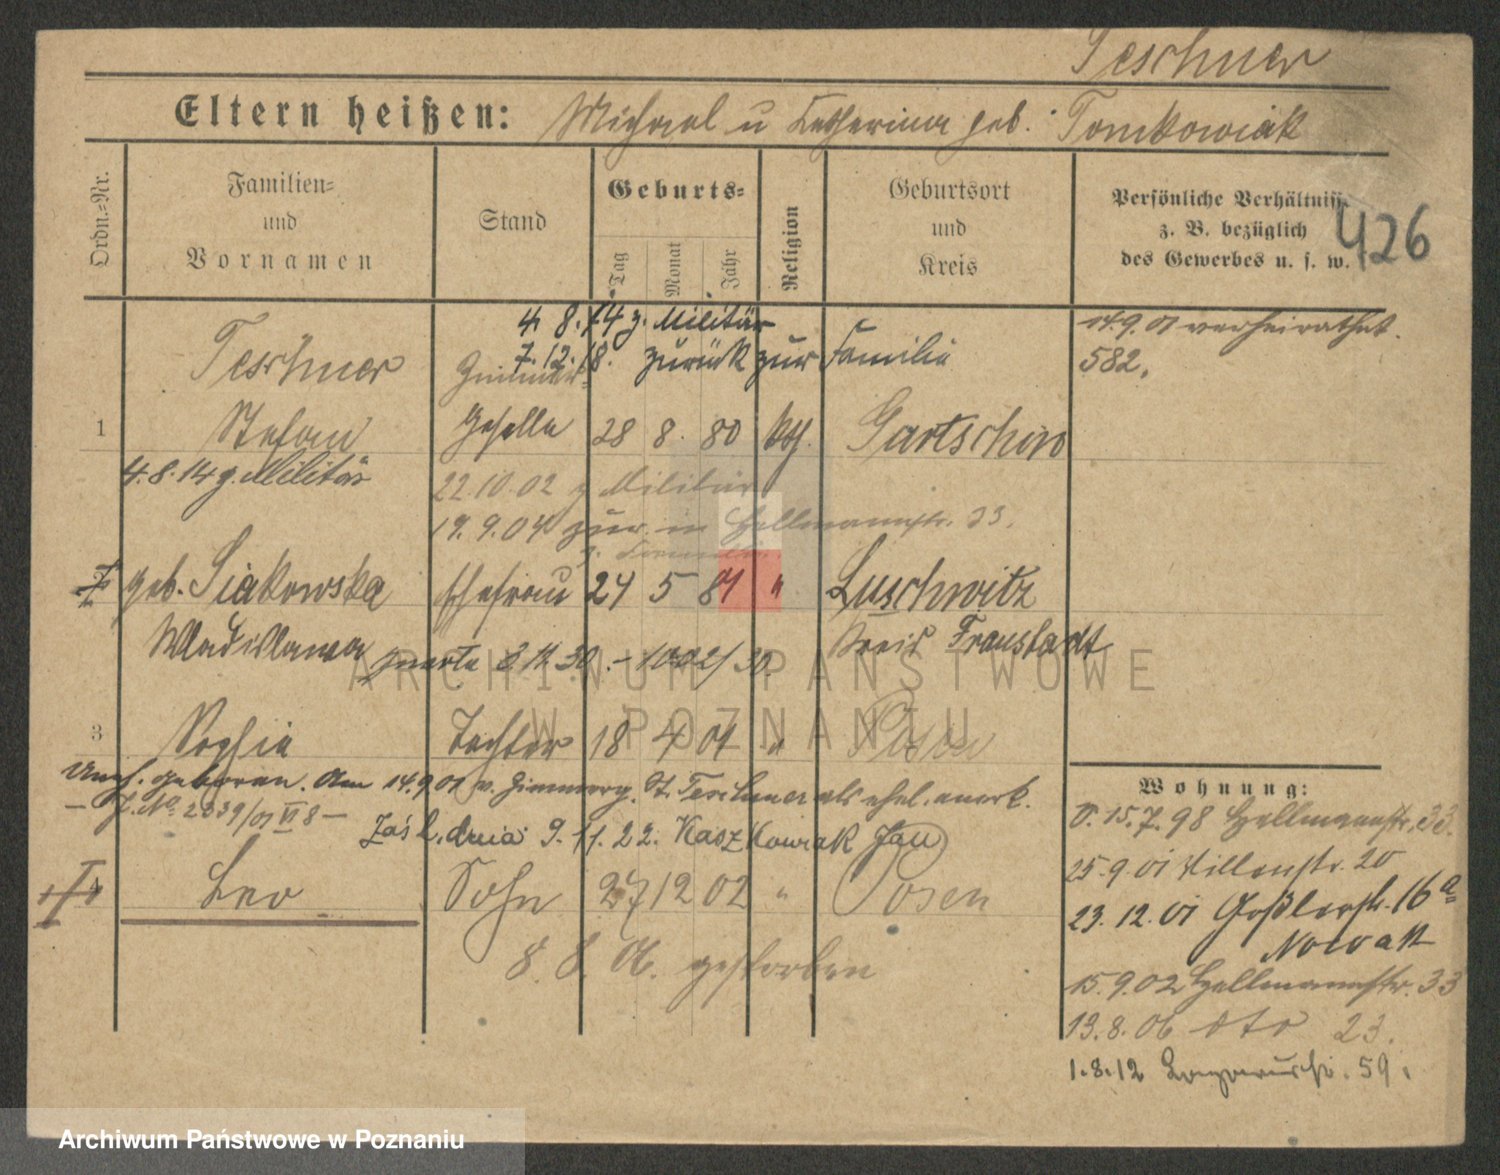 Teschner
Eltern heißen: Michael u Katharina geb. Tomkowiak
Ordn.=Nr.
Familien=
und
Vornamen
Stand
Geburts=
Tag
Monat
Jahr
Religion
Geburtsort
und
Kreis
Persönliche Verhältnisse
z. B. bezüglich
des Gewerbes u. s. w.
426
4. 8. 14 z. Militär
7. 12. 18. zurück zur Familie
14.9.01 verheirathet.
582.
Teschner
1 Stefan Geselle 28 8. 80 kth. Gartschin
4.8.14 z. Militär
22.10.02 z Militär
19.9.04 zur. in Hellmannstr. 33.
2 geb. Siakowska Ehefrau 24 5 81 " Luschwitz
Wladislawa Kreis Fraustadt
3 Sophie Tochter 18 4 01 " Posen
geboren. Am 14.9.01 v. St. Teschner als ehel. anerk.
J. No 2339/01 VI 8 —
Zaśl. dnia 9. 11. 22. Kaszkowiak Jan
4 Leo Sohn 27 12 02 " Posen
8. 8. 06. gestorben
Wohnung:
O. 15.7.98 Hellmannstr. 33.
25.9.01 Villenstr. 20
23.12.01 Goßlerstr. 16a
Nowak
15.9.02 Hellmannstr. 33
13.8.06 dto 23.
1.8.12 59.
ARCHIWUM PAŃSTWOWE
W POZNANIU
Archiwum Państwowe w Poznaniu